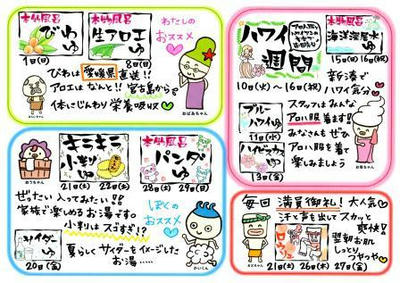 本物風呂
びわゆ
1日(日)
本物風呂
生アロエゆ
8日(日)
わたしの
おススメ
びわは愛媛県直送!!
アロエはなんと!! 宮古島から
体にじんわり栄養吸収
おばあちゃん
ハワイ
週間
10日(火)〜16日(祝)
海洋深層水
ゆ
15日(日)16日(祝)
新湯で
ハワイ気分
ブルー
ハワイゆ
11日(水)
ハイビスカス
ゆ
13日(金)
スタッフはみんな
アロハ服着ます!!
みなさんもぜひ
アロハ服を着て
楽しみましょう
お母ちゃん
キラキラ
小判ゆ
21日(土) 22日(日)
本物風呂
パンダ
ゆ
28日(土) 29日(日)
ぜったい入ってみたい!!
家族で楽しめるお湯です。
小判はスゴすぎ!?
ぼくの
おススメ
サイダー
ゆ
20日(金)
夏らしくサイダーをイメージした
お湯……
かいくん
毎回 満員御礼! 大人気
汗と声を出してスカッと
爽快!
翌朝お肌
しっとり
つやつや
21日(土) 26日(木) 27日(金)